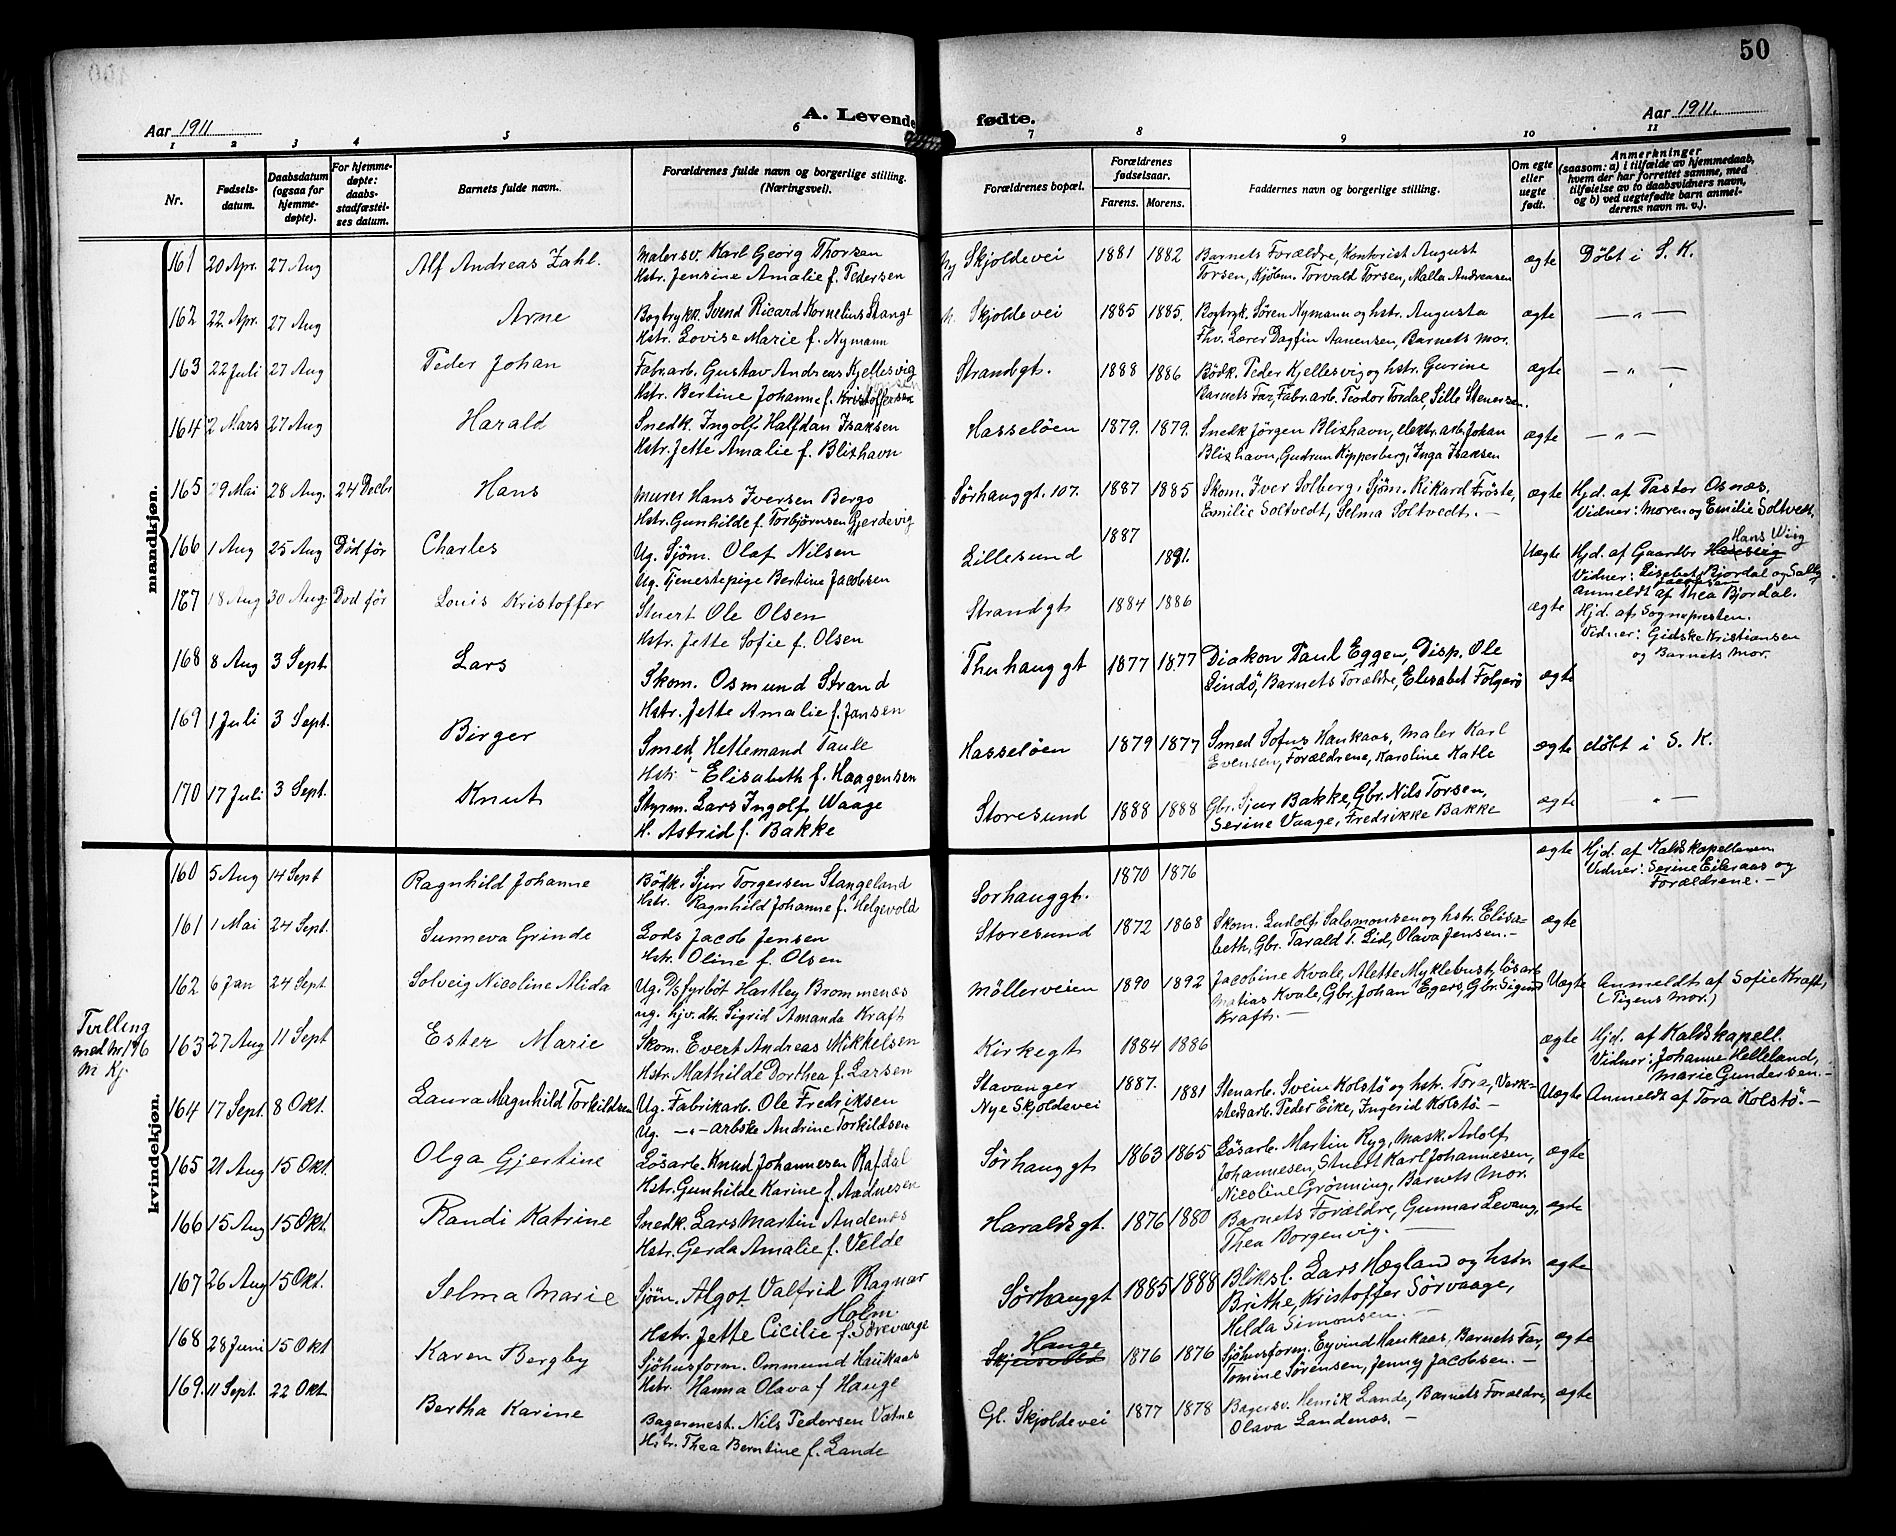 50
A. Levende fødte.
Aar 1911
Aar 1911.
1 2 3 4 5 6 7 8 9 10 11
Nr.
Fødsels-
datum.
Daabsdatum
(ogsaa for
hjemme-
døpte).
For hjemme-
døpte:
daabs-
stadfæstel-
ses datum.
Barnets fulde navn.
Forældrenes fulde navn og borgerlige stilling.
(Næringsvei).
Forældrenes bopæl.
Forældrenes
fødselsaar.
Farens. Morens.
Faddernes navn og borgerlige stilling.
Om egte
eller
uegte
født.
Anmerkninger
(saasom: a) i tilfælde av hjemmedaab,
hvem der har forrettet samme, med
tilføielse av to daabsvidners navn,
og b) ved uegtefødte barn anmel-
derens navn m. v.).
mandkjøn.
161 20 Apr. 27 Aug Alf Andreas Zahl. Malersv. Karl Georg Thorsen
Hstr. Jensine Amalie f. Pedersen
Ny Skjoldevei 1881 1882 Barnets Forældre, Kontorist August
Torsen, Kjøbm. Torvald Torsen, Malla Andreasen
ægte Døbt i S. K.
162 22 Apr. 27 Aug Arne Bogtrykk. Svend Ricard Kornelius Stangt
Hstr. Lovise Marie f. Nymann
N. Skjoldevei 1885 1885. Bogtryk. Søren Nymann og hstr. Augusta
Fhv. Lærer Dagfin Aanensen, Barnets Mor.
ægte — " —
163 22 Juli 27 Aug Peder Johan Fabr.arb. Gustav Andreas Kjellesvig
Hstr. Bertine Johanne f. Kristoffersen
Strandgt. 1888 1886 Bødk. Peder Kjellesvig og hstr. Gurine
Barnets Far, Fabr.arb. Teodor Tordal, Sille Stenersen.
ægte — " —
164 2 Mars 27 Aug Harald Snedk. Ingolf Halfdan Isaksen
Hstr. Jette Amalie f. Blikhavn
Hasseløen 1879. 1879. Snedk Jörgen Blikhavn, elektr. arb. Johan
Blikhavn, Gudrun Kipperberg, Inga Isaksen
ægte — " —
165 29 Mai 28 Aug. 24 Decbr Hans Murer Hans Iversen Bergo
Hstr. Gunhilde f. Torbjörnsen Gjerdevig
Sörhauggt. 107. 1887 1885 Skom. Iver Solberg, Sjøm. Rikard Fröste,
Emilie Soltvedt, Selma Soltvedt. —
ægte Hjd. af Pastor Osnæs,
Vidner: Moren og Emilie Soltvedt.
166 1 Aug 25 Aug Död før Charles Ug. Sjøm. Olaf Nilsen
Ug. Tjenestepige Bertine Jacobsen
Lillesund 1887 1891. Uegte Hjd. af Gaardbr Hans Wisg
Vidner: Lisebet Bjordal og Sally
Jacobsen
Anmeldt af Thea Bjordal.
167 18 Aug 30 Aug. Dod før Louis Kristoffer Stuert Ole Olsen
Hstr. Jette Sofie f. Olsen
Strandgt 1884 1886 ægte Hjd. af Sognepresten.
Vidner: Gidske Kristiansen
og Barnets Mor.
168 8 Aug 3 Sept. Lars Skom. Osmund Strand
Hstr. Jette Amalie f. Jansen
Thuhauggt 1877 1877 Diakon Paul Eggen, Disp. Ole
Lindö, Barnets Forældre, Elisabet Folgerö
ægte
169 1 Juli 3 Sept. Birger Smed, Hettemand Taule
Hstr - Elisabeth f. Haagensen
Hasseløen 1879 1877 Smed Sofus Haukaas, Maler Karl
Evensen, Forældrene, Karoline Katle
ægte döbt i S. K.
170 17 Juli 3 Sept. Knut Styrm. Lars Ingolf Waage
H. Astrid f. Bakke
Storesund 1888 1888 Gbr. Sjur Bakke, Gbr. Nils Torsen,
Serine Vaage, Fredrikke Bakke
ægte " —
kvindekjøn.
160 5 Aug 14 Sept Ragnhild Johanne Bödk. Sjur Torgersen Stangeland
Hstr. Ragnhild Johanne f. Helgevold
Sorhauggt. 1870 1876
ægte Hjd. af Kaldskapellanen
Vidner: Serine Eikraas og
Forældrene. —
161 1 Mai 24 Sept. Sunneva Grinde Lods Jacob Jensen
Hstr. Oline f. Olsen
Storesund 1872 1868 Skom. Ludolf Salomonsen og hstr. Elisa-
beth, Gbr. Tarald T. Lid, Olava Jensen. —
ægte
162 6 Jan 24 Sept Solveig Nicoline Alida Ug. D/s fyrböt Hartley Brommenæs
ug. hjv. dtr. Sigrid Amanda Kraft
Möllerveien 1890 1892 Jacobine Kvale, Alette Myklebust, løsarb
Matias Kvale, Gbr. Johan Egers, Gbr. Sigurd
Kraft. —
Uægte Anmeldt af Sofie Kraft,
(Pigens Mor.)
Tvilling
med Nr 176
M Kj
163 27 Aug 11 Sept Ester Marie Skom. Evert Andreas Mikkelsen
Hstr. Mathilde Dorthea f. Larsen
Kirkegt 1884 1886
ægte Hjd. af Kaldskapell.
Vidner: Johanne Helleland,
Marie Gundersen. —
164 17 Sept. 8 Okt. Laura Magnhild Torkildsen Ug. Fabrikarb. Ole Fredriksen
Ug. — " — arbske Andrine Torkildsen
Stavanger
Nye Skjoldevei
1887. 1881 Stenarb. Svein Kolstø og hstr. Tora, Verk-
stedsarb. Peder Eike, Ingerid Kolstø. —
Uægte Anmeldt af Tora Kolstø. —
165 21 Aug 15 Okt Olga Gjertine Løsarb. Knud Johannesen Rafdal
Hstr. Gunhilde Karine f. Aadnesen
Sørhauggt 1863 1865 Løsarb. Martin Ryg, Mask. Adolf
Johannesen, Stuert Karl Johannesen,
Nicoline Grönning, Barnets Mor.
ægte
166 15 Aug 15 Okt. Randi Katrine Snedk. Lars Martin Andenæs
Hstr. Gerda Amalie f. Velde
Haraldsgt. 1876 1880 Barnets Forældre, Gunnar Levang,
Thea Borgenvig. —
ægte
167 26 Aug 15 Okt. Selma Marie Sjöm. Algot Valfrid Ragnar
Holm
Hstr. Jette Cicilie f. Sörevaage
Sörhauggt 1885 1888 Bliksl. Lars Hægland og hstr
Brithe, Kristoffer Sörvaage,
Hilda Simonsen. —
ægte
168 28 Juni 15 Okt Karen Bergby Sjöhusform. Ommund Haukaas
Hstr. Hanna Olava f. Hauge
Hauge
1876 1876 Sjöhusform. Eyvind Haukaas, Barnets Far,
Tomine Sörensen, Jenny Jacobsen. —
ægte
169. 11 Sept. 22 Okt Bertha Karine Bagermest. Nils Pedersen Vatne
Hstr. Thea Berntine f. Lande
Gl. Skjoldevei 1877 1878 Bagersv. Henrik Lande, Barnets Forældre,
Olava Landenæs. —
ægte